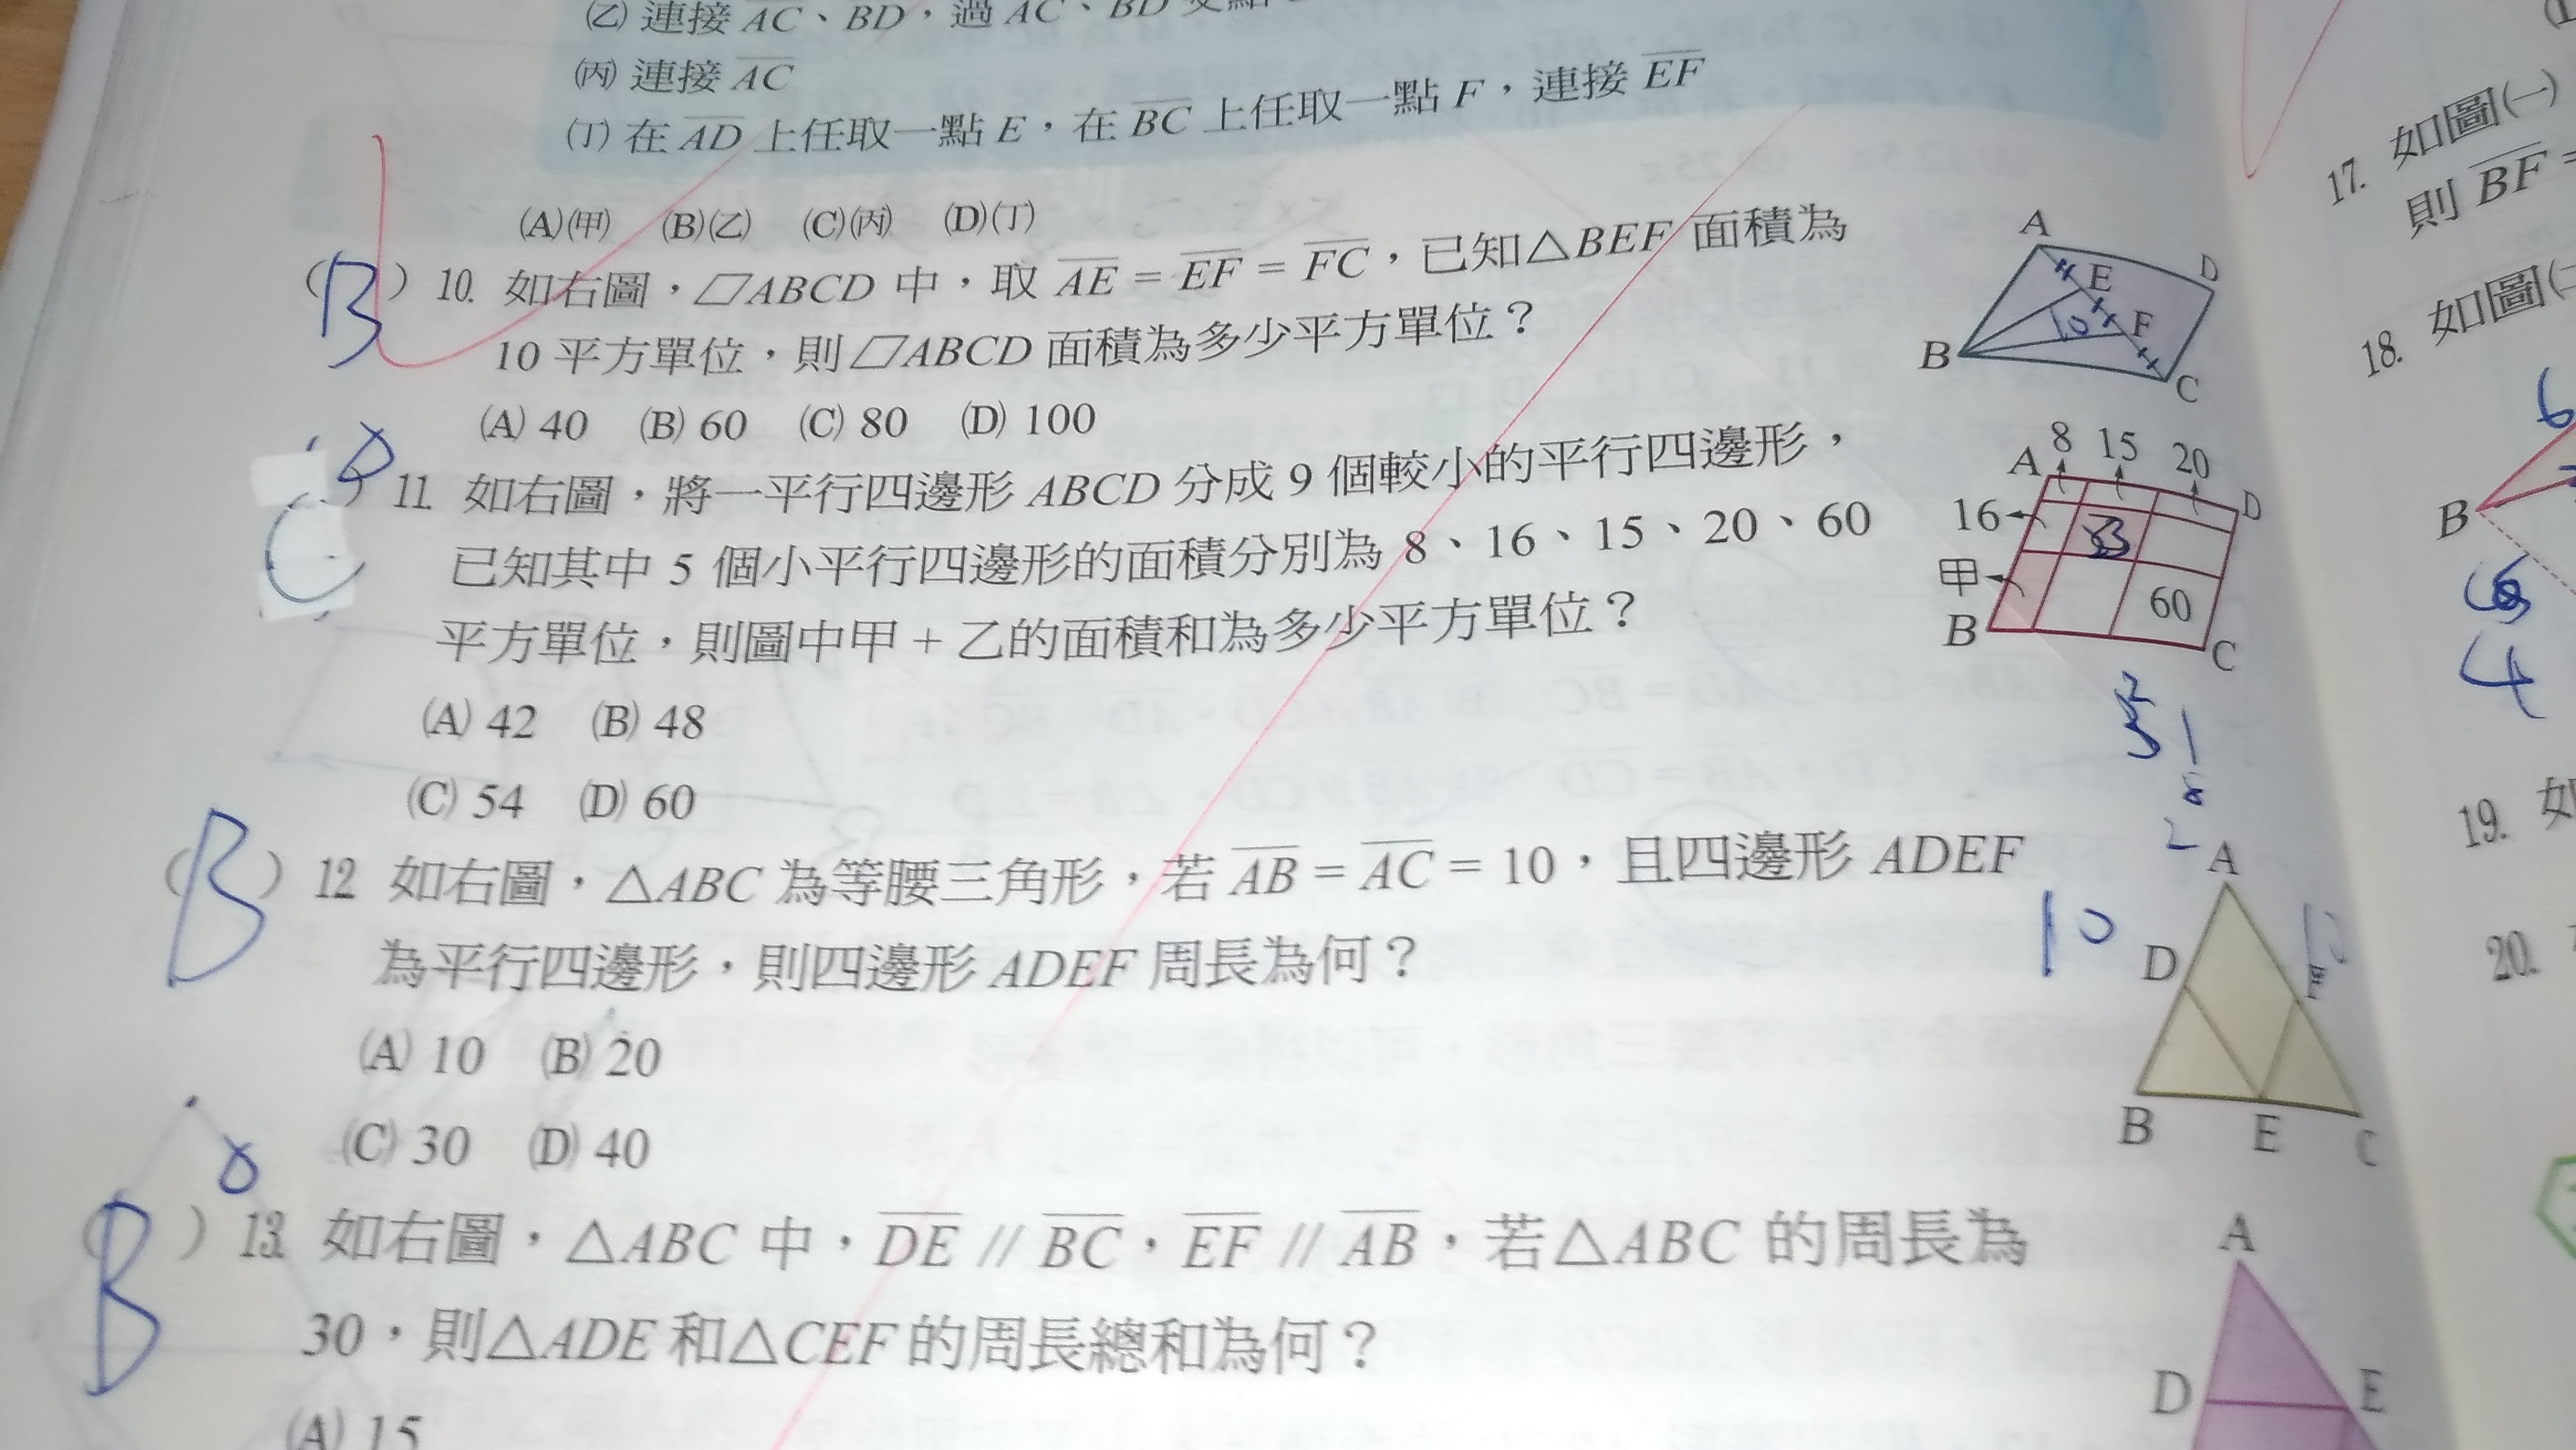 (乙) 連接 AC、BD，過 AC、BD
(丙) 連接 AC
(丁) 在 AD 上任取一點 E，在 BC 上任取一點 F，連接 EF
(A)(甲) (B)(乙) (C)(丙) (D)(丁)
(B) 10. 如右圖，▱ABCD 中，取 AE = EF = FC，已知△BEF 面積為
10 平方單位，則▱ABCD 面積為多少平方單位？
(A) 40 (B) 60 (C) 80 (D) 100
A
D
E
10
F
B
C
C
11. 如右圖，將一平行四邊形 ABCD 分成 9 個較小的平行四邊形，
已知其中 5 個小平行四邊形的面積分別為 8、16、15、20、60
平方單位，則圖中甲 + 乙的面積和為多少平方單位？
(A) 42 (B) 48
(C) 54 (D) 60
8 15 20
A
D
16
甲
60
B
C
(B) 12. 如右圖，△ABC 為等腰三角形，若 AB = AC = 10，且四邊形 ADEF
為平行四邊形，則四邊形 ADEF 周長為何？
(A) 10 (B) 20
(C) 30 (D) 40
A
10
10
D
F
B E C
(B) 13. 如右圖，△ABC 中，DE // BC，EF // AB，若△ABC 的周長為
30，則△ADE 和△CEF 的周長總和為何？
(A) 15
A
D E
17. 如圖(一)
則 BF =
18. 如圖(二
6
B
4
19. 如
20.